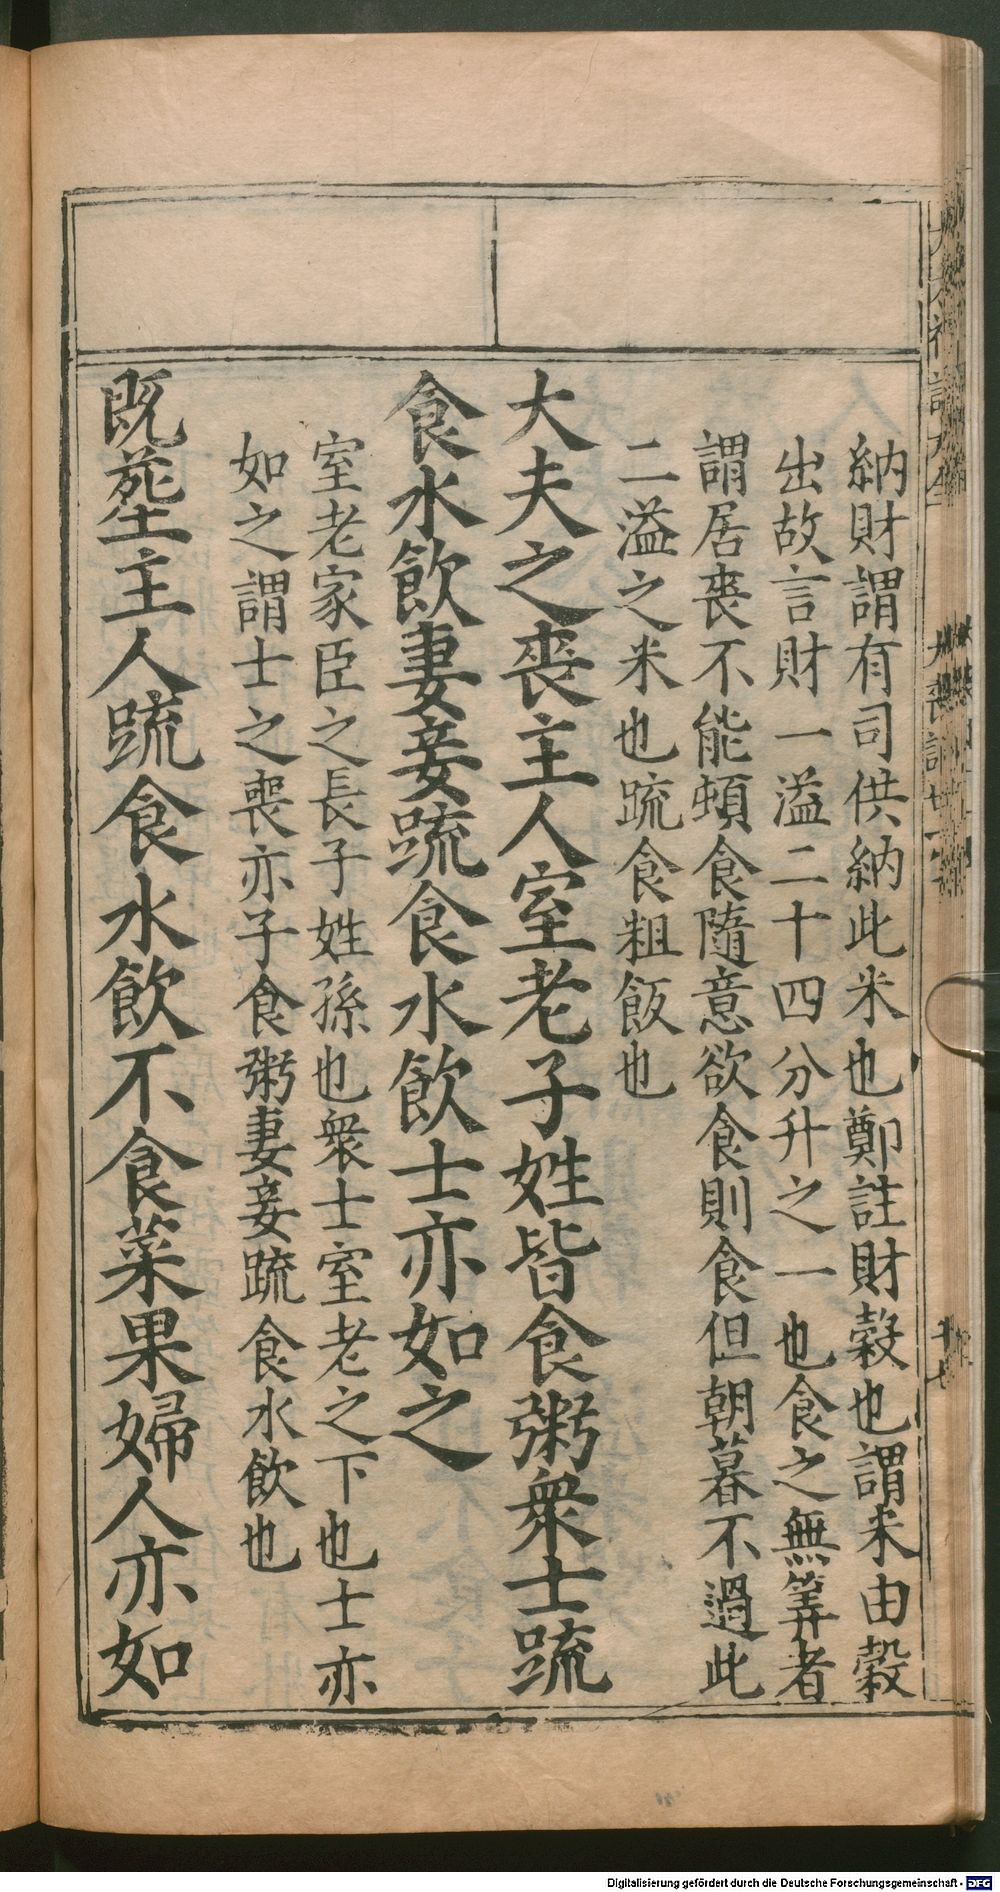 納財謂有司供納此米也鄭註財榖也謂米由榖
出故言財一溢二十四分升之一也食之無筭者
謂居喪不能頓食隨意欲食則食但朝暮不過此
二溢之米也䟽食粗飯也
大夫之喪主人室老子姓皆食粥衆士䟽
食水飲妻妾䟽食水飲士亦如之
室老家臣之長子姓孫也衆士室老之下也士亦
如之謂士之喪亦子食粥妻妾䟽食水飲也
既塟主人䟽食水飲不食菜果婦人亦如
Digitalisierung gefördert durch die Deutsche Forschungsgemeinschaft - DFG